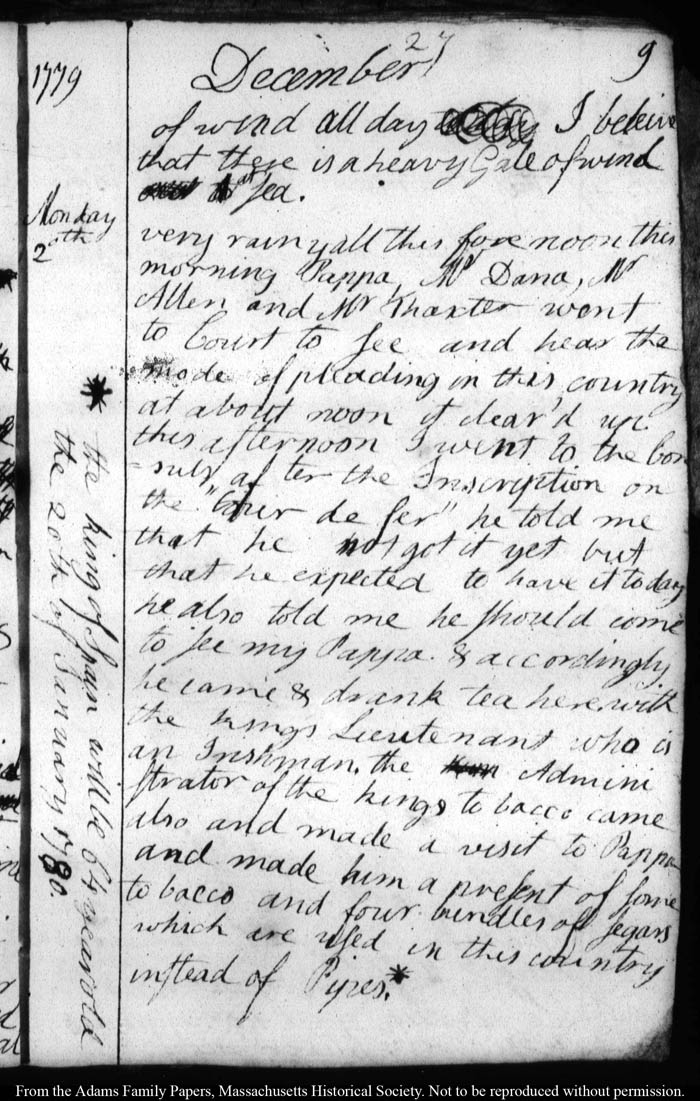 1779
December 27
9
of wind all day I beleive
that there is a heavy Gale of wind
at Sea.
Monday
2
very rainy all this fore noon this
morning Pappa, Mr Dana, Mr
Allen and Mr Thaxter went
to Court to see and hear the
mode of pleading in this country
at about noon it clear'd up
this afternoon I went to the Con
-suls, after the Inscription on
the "Tour de fer" he told me
that he not got it yet but
that he expected to have it to day
he also told me he should come
to see my Pappa. & accordingly
he came & drank tea here with
the kings Lieutenant who is
an Irishman. the Admini
strator of the kings tobacco came
also and made a visit to Pappa
and made him a present of some
tobacco and four bundles of segars
which are used in this country
instead of Pipes.*
* the king of Spain will be 64 years old
the 20th of January 1780.
From the Adams Family Papers, Massachusetts Historical Society. Not to be reproduced without permission.